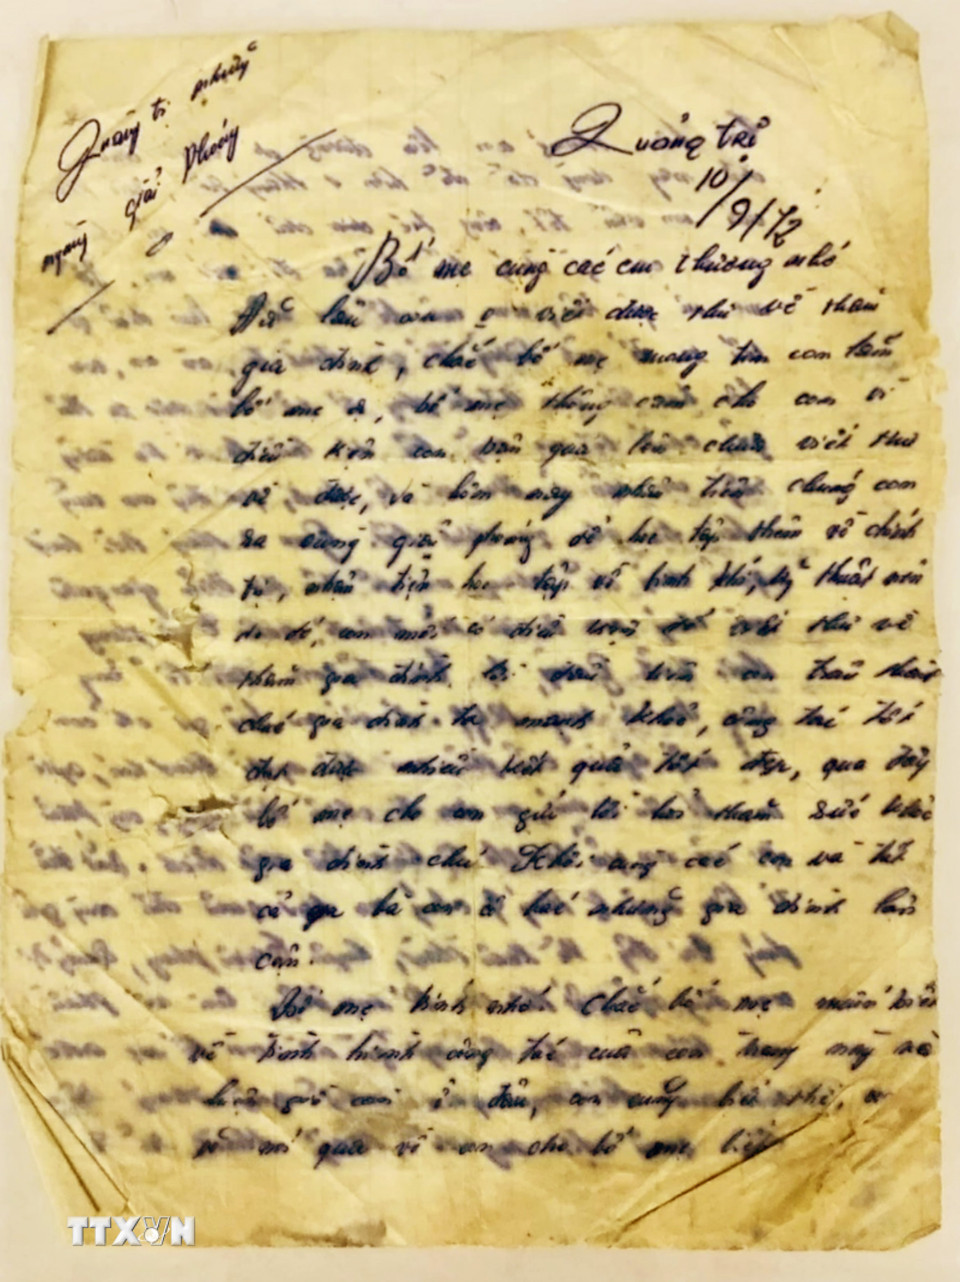 Quảng trị những
ngày giải phóng
Quảng trị
10/9/72
Bố mẹ cùng các em thương nhớ
Đã lâu con o viết được thư về thăm
gia đình, chắc bố mẹ mong tin con lắm
bố mẹ ạ, bố mẹ thông cảm cho con vì
điều kiện con bận quá lên chưa viết thư
về được, và hôm nay nhân tiện chúng con
ra vùng giải phóng để học tập thêm về chính
trị, nhân tiện học tập về binh khí, kỹ thuật nên
do đó con mới có điều kiện để viết thư về
thăm gia đình. Lời đầu tiên con thân
chúc gia đình ta mạnh khoẻ, công tác tốt
đạt được nhiều kết quả tốt đẹp, qua đây
bố mẹ cho con gửi lời hỏi thăm sức khoẻ
gia đình chú Khôi cùng các em và tất
cả gia bà con cô bác những gia đình lân
cận.
Bố mẹ kính nhớ. Chắc bố mẹ muốn biết
về tình hình công tác của con trong này và
hiện giờ con ở đâu, con cũng
qua về con cho bố mẹ biết
TTXVN